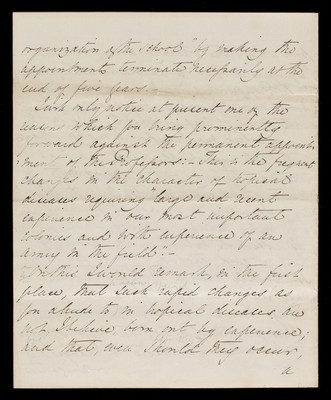 organization of the School" by making the
appointments terminate necessarily at the
end of five years.—
I will only notice at present one of the
reasons which you bring prominently
forward against the permanent appoint-
ment of the Professors:— This is the frequent
changes in the character of tropical
diseases requiring "large and recent
experience in our most important
colonies and with experience of an
army in the field".—
On this I would remark, in the first
place, that such rapid changes as
you allude to, in tropical diseases are
not, I believe, born out by experience;
and that, even should they occur,
a